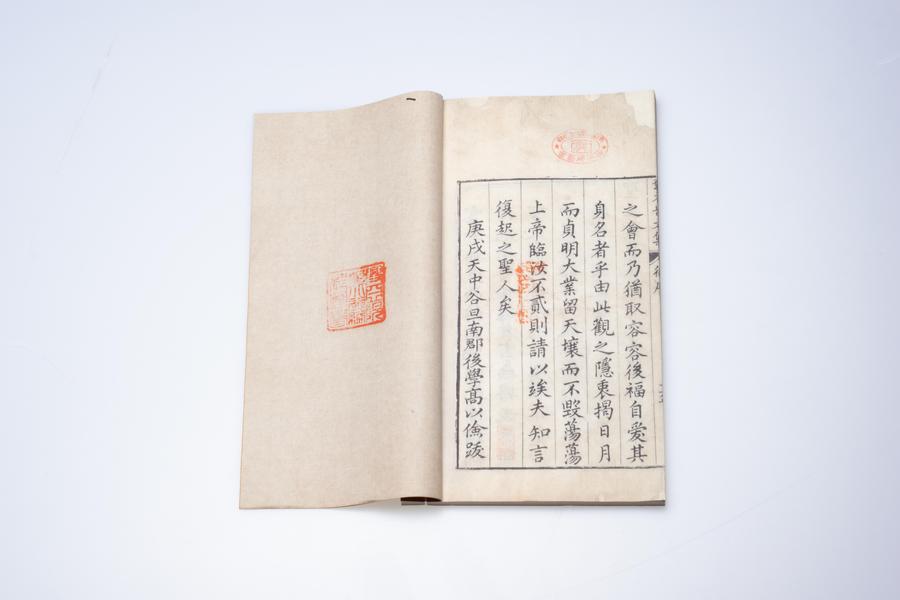 之會而乃猶取容容後福自爱其
身名者乎由此觀之隱衷揭日月
而貞明大業留天壤而不毀蕩蕩
上帝臨汝不貳則請以竢夫知言
復起之聖人矣
庚戌天中谷旦南郡後學高以儉跋